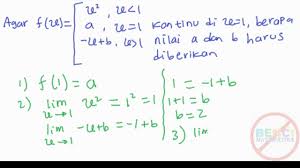 Agar f(x) = { x², x<1
a, x=1
-x+b, x>1
kontinu di x=1, berapa
nilai a dan b harus
diberikan
1) f(1) = a
2) lim x→1 x² = 1² = 1
lim x→1 -x+b = -1+b
1 = -1+b
1+1 = b
b = 2
3) lim